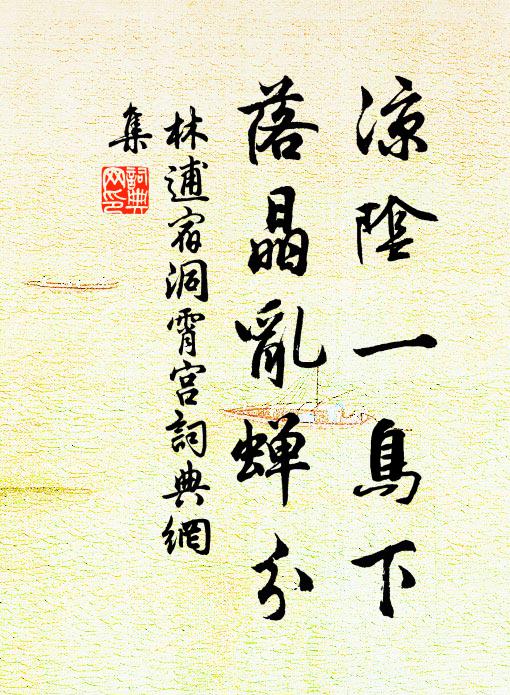 涼陰一鳥下
落晶亂蟬分
林逋宿洞霄宮詞典網
集
詞典
网印